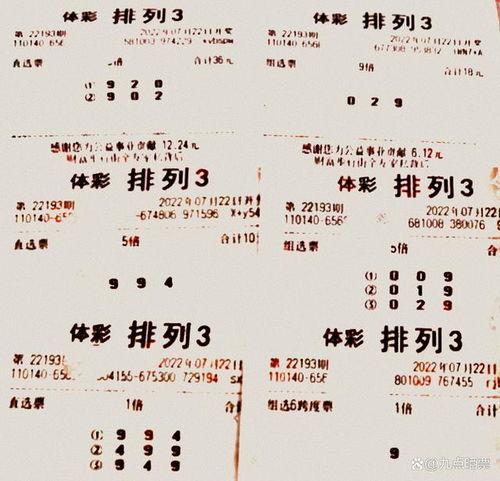 体彩 排列3
第 22193期 2022年07月22日开奖
110140-656 581003 974229
直选票 倍 合计36元
① 9 2 0
② 9 0 2
感谢您为公益事业贡献 12.24元
体彩 排列3
第 22193期 2022年07月22日开奖
110140-656
组选票 9倍 合计18元
0 2 9
感谢您为公益事业贡献 6.12元
体彩 排列3
第 22193期 2022年07月22日开奖
110140-656 -674806 971596 X+y54
直选票 5倍 合计10
9 9 4
体彩 排列3
第 22193期 2022年07月22
110140-656 681008 380076
组选票 5倍 合计
① 0 0 9
② 0 1 9
③ 0 2 9
体彩 排列3
第 22193 2022年07月22日
110140-656 04155-675300 729194
直选票 1倍 合计
① 9 9 4
② 4 9 9
③ 9 4 9
体彩 排列3
第 22193期 2022年07月22
110140-656 801009 767455
组选6跨度票 1倍 合
9
九点旺票